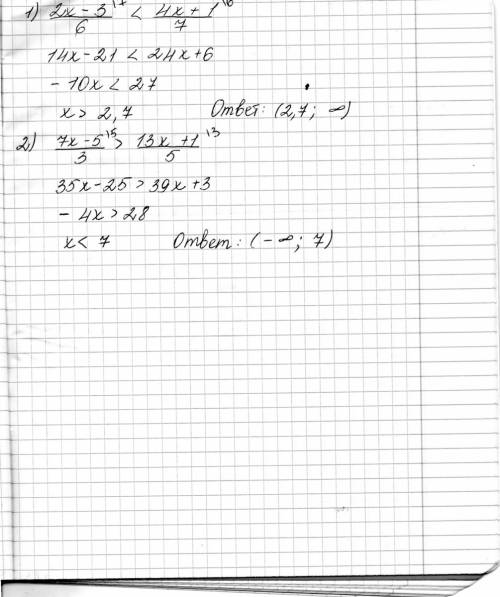 1) (2x - 3)/6 \7 < (4x + 1)/7 \6
14x - 21 < 24x + 6
- 10x < 27
x > 2,7 Ответ: (2,7 ; ∞)
2) (7x - 5)/3 \5 > (13x + 1)/5 \3
35x - 25 > 39x + 3
- 4x > 28
x < 7 Ответ: (- ∞ ; 7)